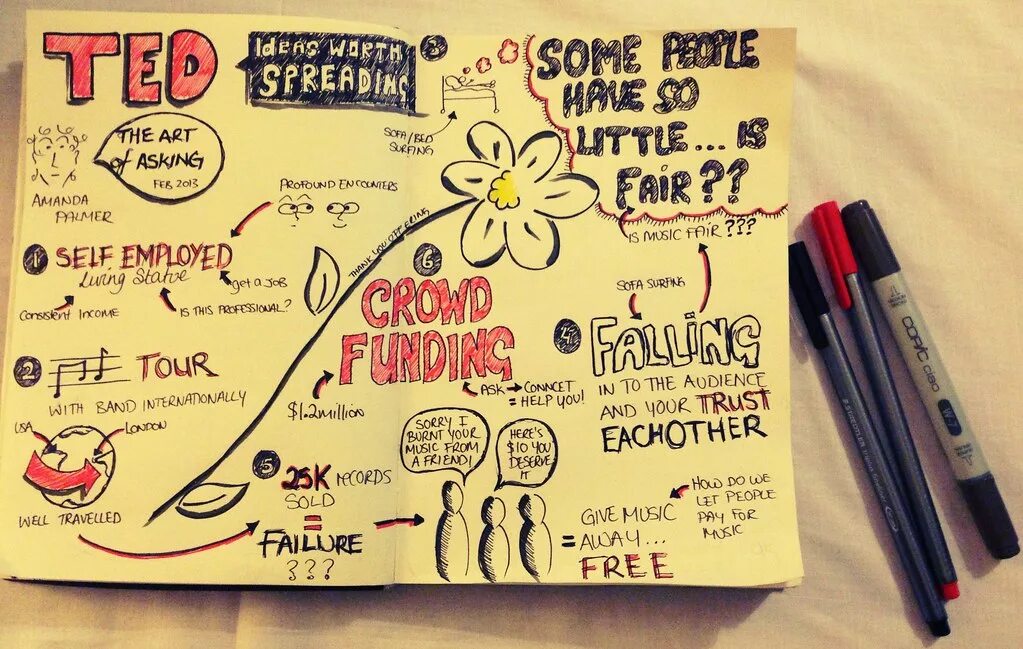 TED
IDEAS WORTH
SPREADING
THE ART
of ASKING
FEB 2013
AMANDA
PALMER
PROFOUND ENCOUNTERS
1 SELF EMPLOYED
Living Statue
get a JOB
Consistent INCOME
IS THIS PROFESSIONAL?
2 TOUR
WITH BAND INTERNATIONALLY
USA
LONDON
WELL TRAVELLED
3
SOFA/BED
SURFING
SOME PEOPLE
HAVE SO
LITTLE... IS
FAIR??
IS MUSIC FAIR???
SOFA SURFING
4 FALLING
IN TO THE AUDIENCE
AND YOUR TRUST
EACHOTHER
5
25K RECORDS
SOLD
=
FAILURE
???
THANK YOU OFFERING
6
CROWD
FUNDING
$1.2million
ASK → CONNCET
= HELP YOU!
SORRY I
BURNT YOUR
MUSIC FROM
A FRIEND!
HERE'S
$10 YOU
DESERVE
IT
= GIVE MUSIC
AWAY...
FREE
HOW DO WE
LET PEOPLE
PAY FOR
MUSIC
COPIC ciao
W-7
STAEDTLER